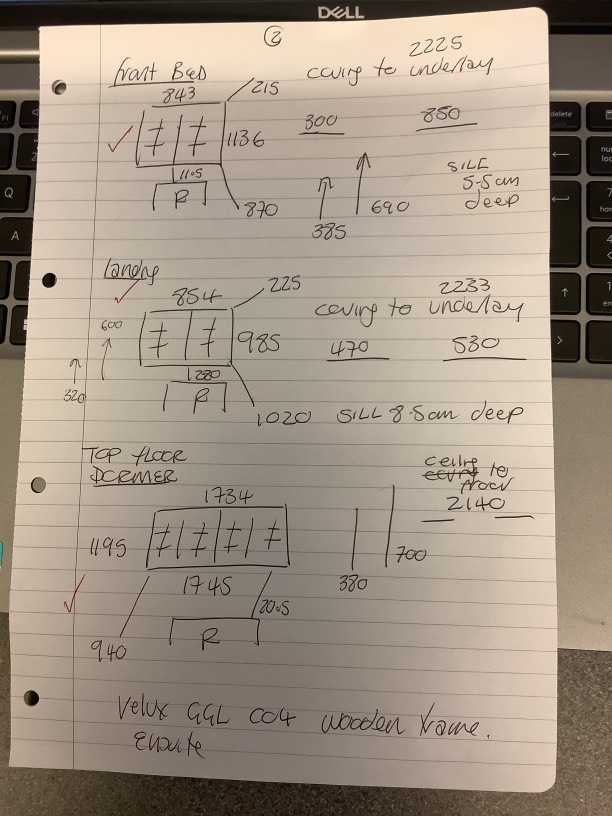 DELL
2
front Bed 2225
843 215 coving to underlay
1136 300 850
1105
R 870 385 690 SILL
5.5cm
deep
landing
854 225 2233
coving to underlay
600 985 470 530
320 1280
R 1020 SILL 8.5cm deep
TOP FLOOR
DORMER ceiling to
floor
1734 2140
1195 700
1745 380
R 20.5
940
Velux GGL CO4 wooden frame.
delete
Q
A